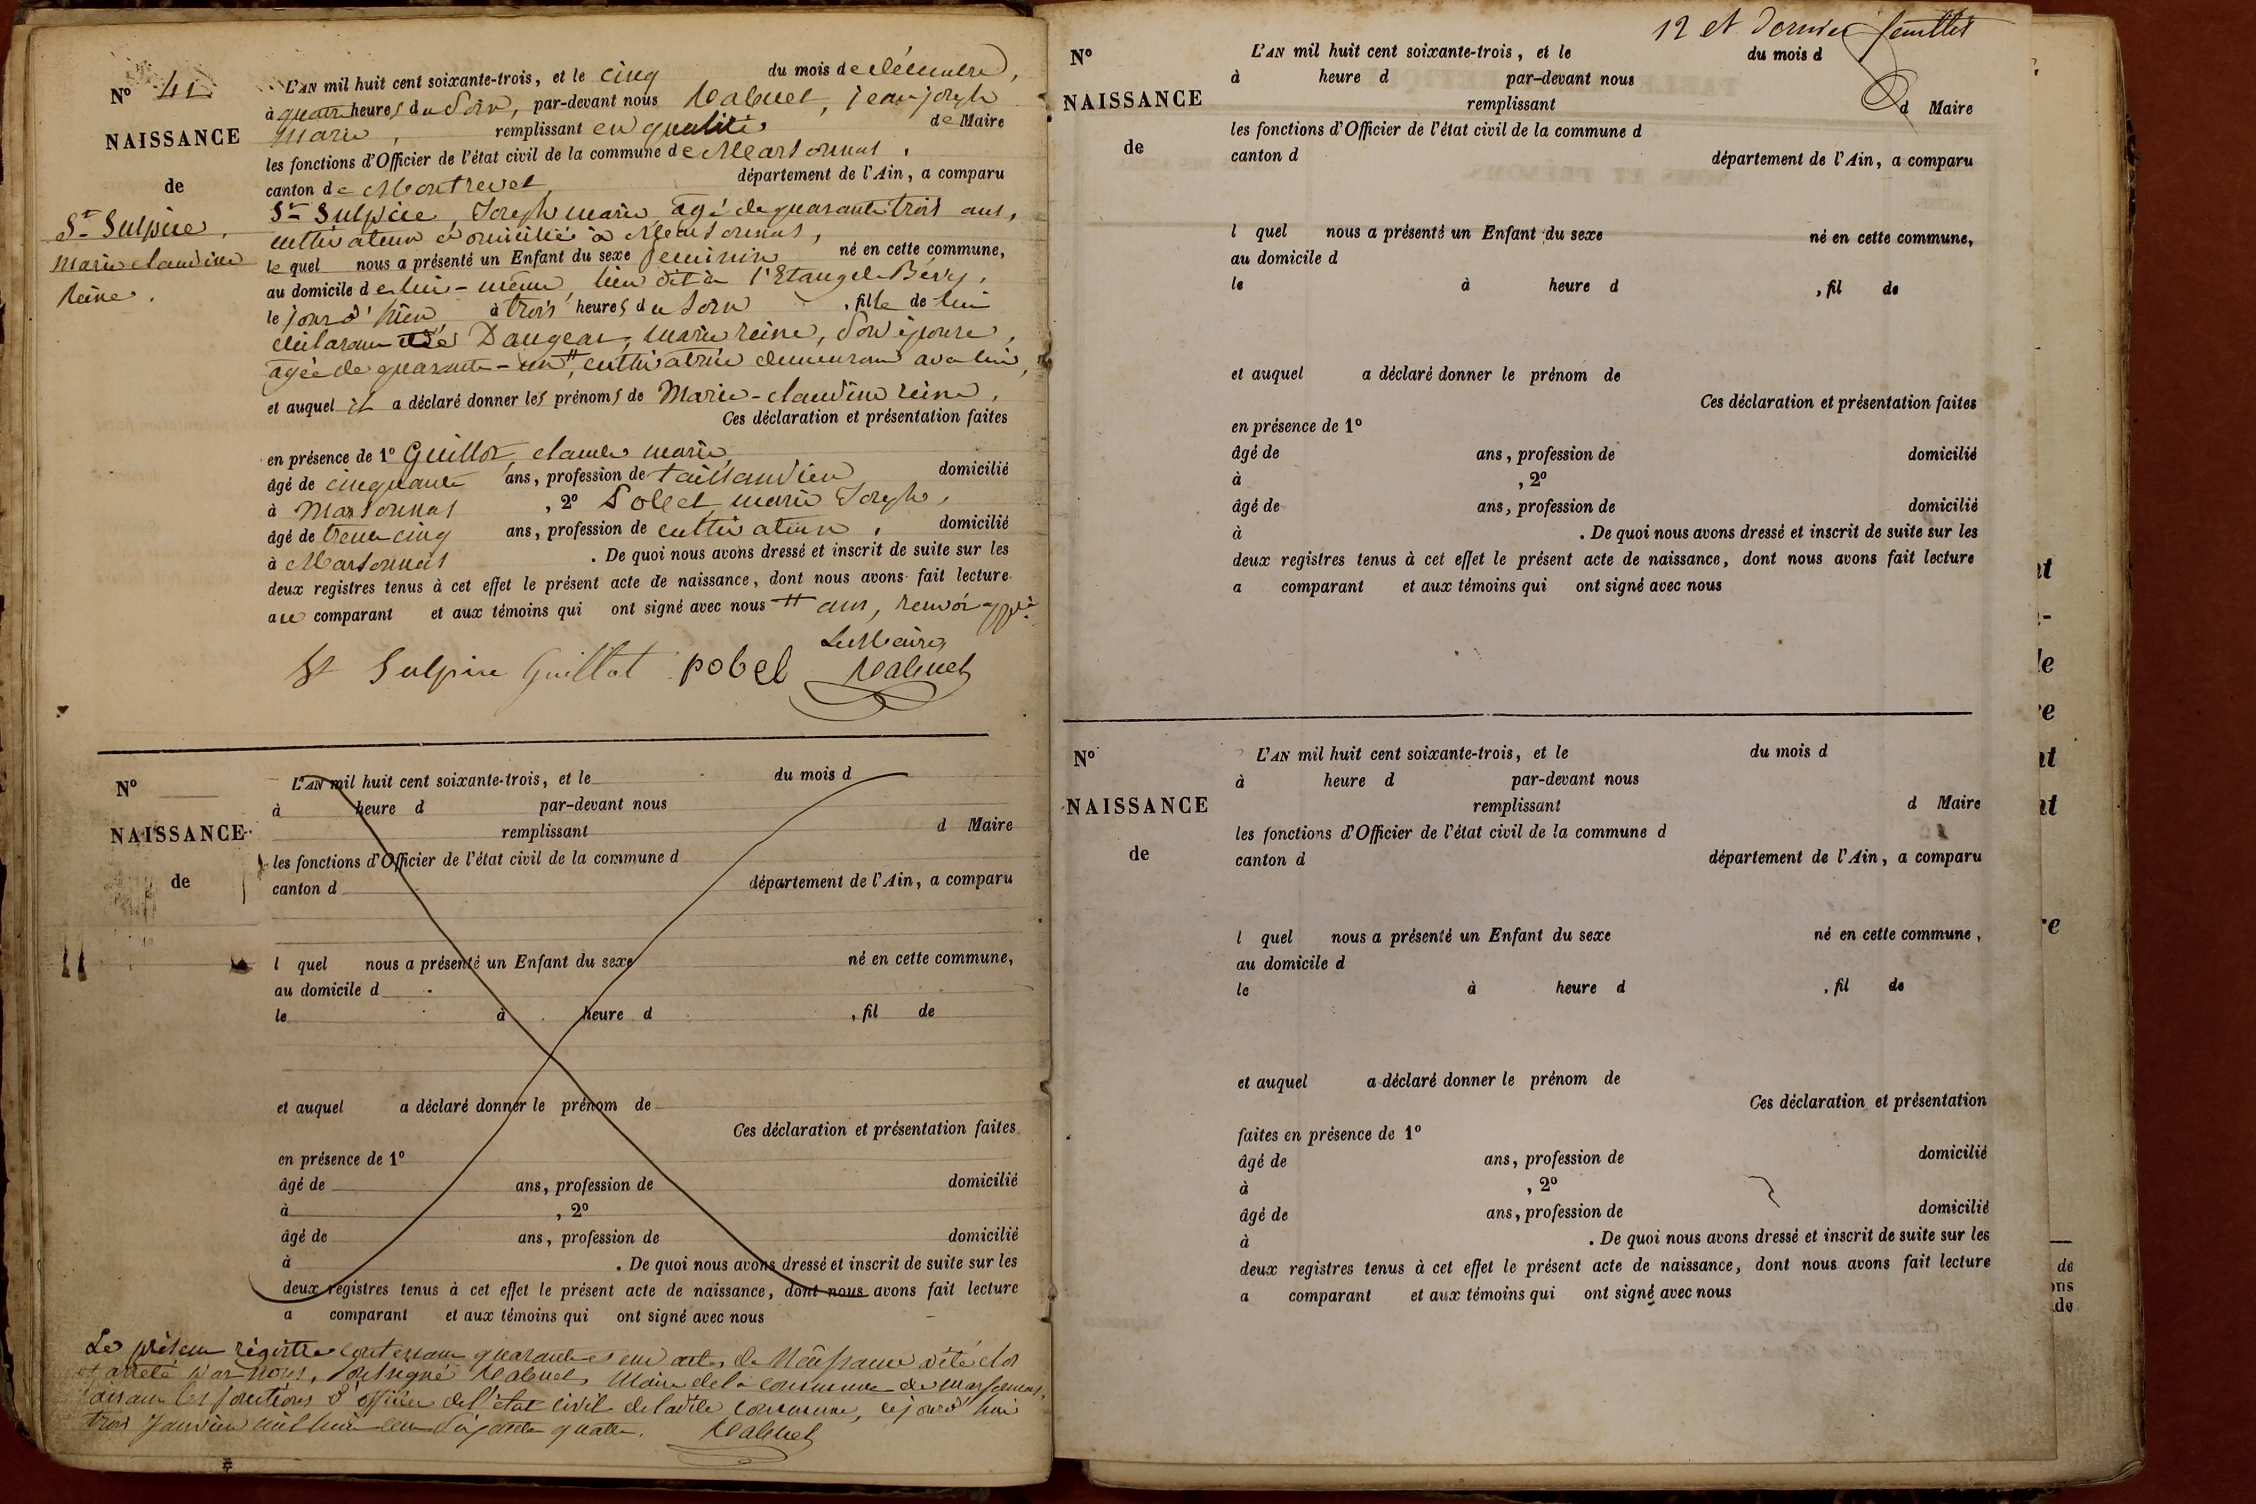 N° 41
NAISSANCE
de
St Sulpice,
marie claudine
Reine.
L'AN mil huit cent soixante-trois, et le cinq du mois de décembre,
à quatre heures du Soir, par-devant nous jean joseph
marie, remplissant en qualité de Maire
les fonctions d'Officier de l'état civil de la commune de Marsonnas,
canton de Montrevel, département de l'Ain, a comparu
St Sulpice, Joseph marie, agé de quarante trois ans,
cultivateur domicilié à Marsonnas,
le quel nous a présenté un Enfant du sexe féminin né en cette commune,
au domicile de lui-même, lieu dit à l'Etang de Béry,
le jour d'hier à trois heures du soir, fille de lui
déclarant et de Daujeat, marie reine, Son épouse,
agée de quarante-un #, cultivatrice demeurant avec lui,
et auquel il a déclaré donner les prénoms de Marie-claudine reine,
Ces déclaration et présentation faites
en présence de 1° Guillot, claude marie,
âgé de cinquante ans, profession de taillandier domicilié
à Marsonnas, 2° Pobel marie Joseph,
âgé de trente cinq ans, profession de cultivateur, domicilié
à Marsonnas. De quoi nous avons dressé et inscrit de suite sur les
deux registres tenus à cet effet le présent acte de naissance, dont nous avons fait lecture
au comparant et aux témoins qui ont signé avec nous # ans, renvoi app.
Le Maire
St Sulpice Guillot pobel
N°
NAISSANCE
de
L'AN mil huit cent soixante-trois, et le du mois d
à heure d par-devant nous
remplissant d Maire
les fonctions d'Officier de l'état civil de la commune d
canton d département de l'Ain, a comparu
l quel nous a présenté un Enfant du sexe né en cette commune,
au domicile d
le à heure d , fil de
et auquel a déclaré donner le prénom de
Ces déclaration et présentation faites
en présence de 1°
âgé de ans, profession de domicilié
à , 2°
âgé de ans, profession de domicilié
à . De quoi nous avons dressé et inscrit de suite sur les
deux registres tenus à cet effet le présent acte de naissance, dont nous avons fait lecture
a comparant et aux témoins qui ont signé avec nous
Le présent régistre contenant quarante et un actes de Naissance a été clos
et arrêté par nous, soussigné Maire de la commune de marsonnas,
faisant les fonctions d'officier de l'état civil de ladite commune, ce jourd'hui
trois Janvier mil huit cent soixante quatre.
12 et dernier feuillet
N°
NAISSANCE
de
L'AN mil huit cent soixante-trois, et le du mois d
à heure d par-devant nous
remplissant d Maire
les fonctions d'Officier de l'état civil de la commune d
canton d département de l'Ain, a comparu
l quel nous a présenté un Enfant du sexe né en cette commune,
au domicile d
le à heure d , fil de
et auquel a déclaré donner le prénom de
Ces déclaration et présentation faites
en présence de 1°
âgé de ans, profession de domicilié
à , 2°
âgé de ans, profession de domicilié
à . De quoi nous avons dressé et inscrit de suite sur les
deux registres tenus à cet effet le présent acte de naissance, dont nous avons fait lecture
a comparant et aux témoins qui ont signé avec nous
N°
NAISSANCE
de
L'AN mil huit cent soixante-trois, et le du mois d
à heure d par-devant nous
remplissant d Maire
les fonctions d'Officier de l'état civil de la commune d
canton d département de l'Ain, a comparu
l quel nous a présenté un Enfant du sexe né en cette commune,
au domicile d
le à heure d , fil de
et auquel a déclaré donner le prénom de
Ces déclaration et présentation
faites en présence de 1°
âgé de ans, profession de domicilié
à , 2°
âgé de ans, profession de domicilié
à . De quoi nous avons dressé et inscrit de suite sur les
deux registres tenus à cet effet le présent acte de naissance, dont nous avons fait lecture
a comparant et aux témoins qui ont signé avec nous